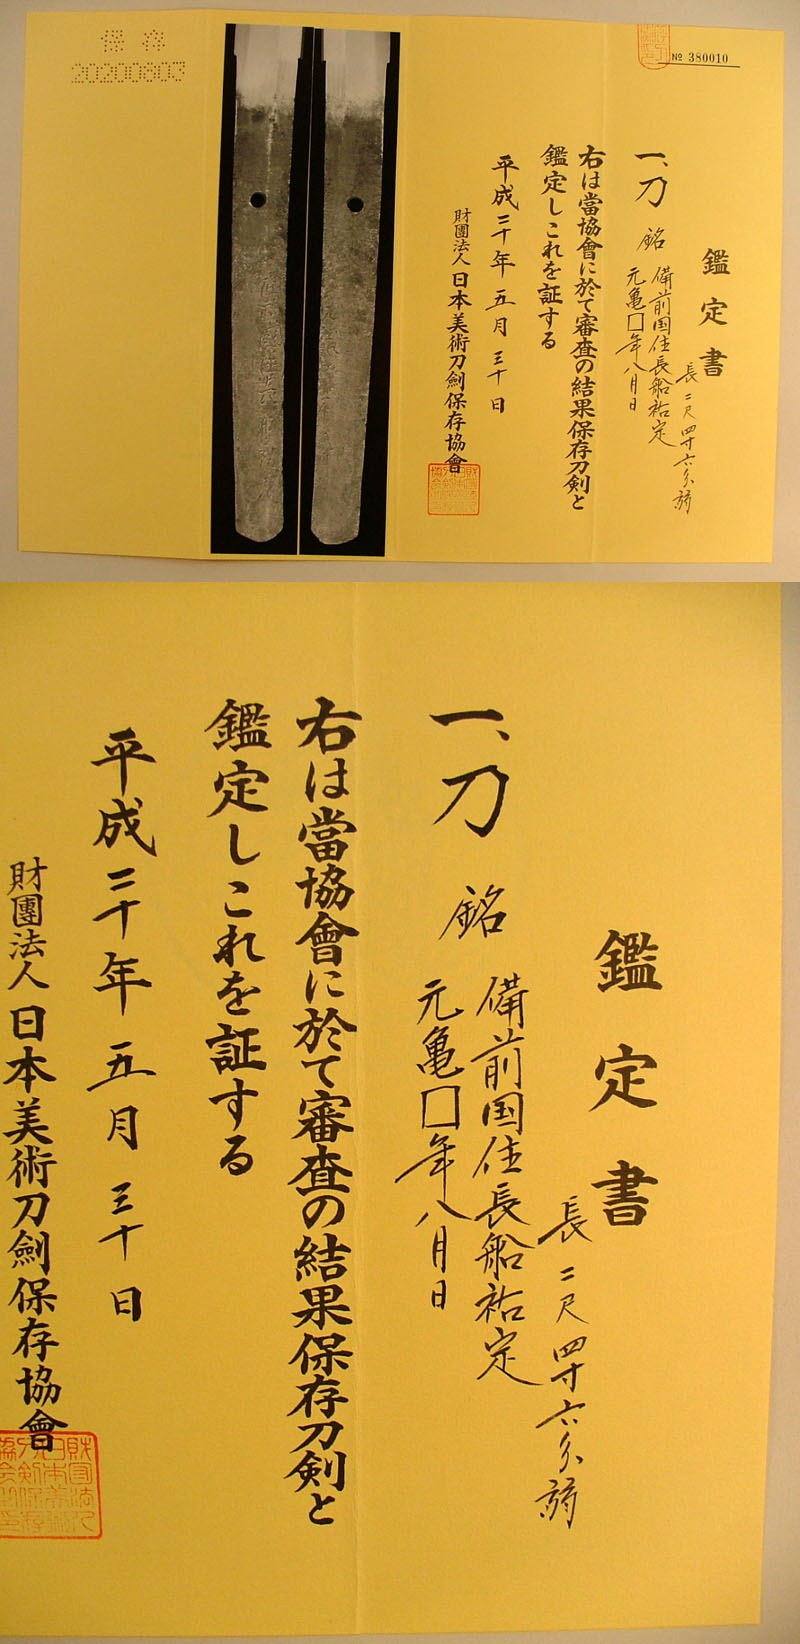 保存
20200603
№ 380010
鑑定書
長二尺四寸六分弱
一、刀 銘
備前国住長船祐定
元亀□年八月日
右は當協會に於て審査の結果保存刀剣と
鑑定しこれを証する
平成二十年五月三十日
財團法人日本美術刀劍保存協會
鑑定書
長二尺四寸六分弱
一、刀 銘
備前国住長船祐定
元亀□年八月日
右は當協會に於て審査の結果保存刀剣と
鑑定しこれを証する
平成二十年五月三十日
財團法人日本美術刀劍保存協會